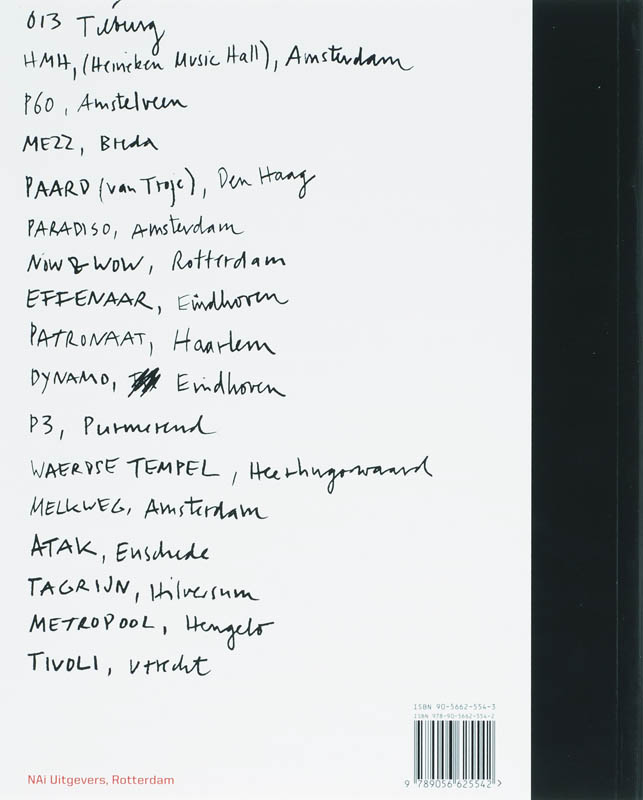 013 Tilburg
HMH, (Heineken Music Hall), Amsterdam
P60, Amstelveen
MEZZ, Breda
PAARD (van Troje), Den Haag
PARADISO, Amsterdam
NOW & WOW, Rotterdam
EFFENAAR, Eindhoven
PATRONAAT, Haarlem
DYNAMO, Eindhoven
P3, Purmerend
WAERDSE TEMPEL, Heerhugowaard
MELKWEG, Amsterdam
ATAK, Enschede
TAGRIJN, Hilversum
METROPOOL, Hengelo
TIVOLI, Utrecht
ISBN 90-5662-554-3
ISBN 978-90-5662-554-2
9 789056 625542 >
NAi Uitgevers, Rotterdam